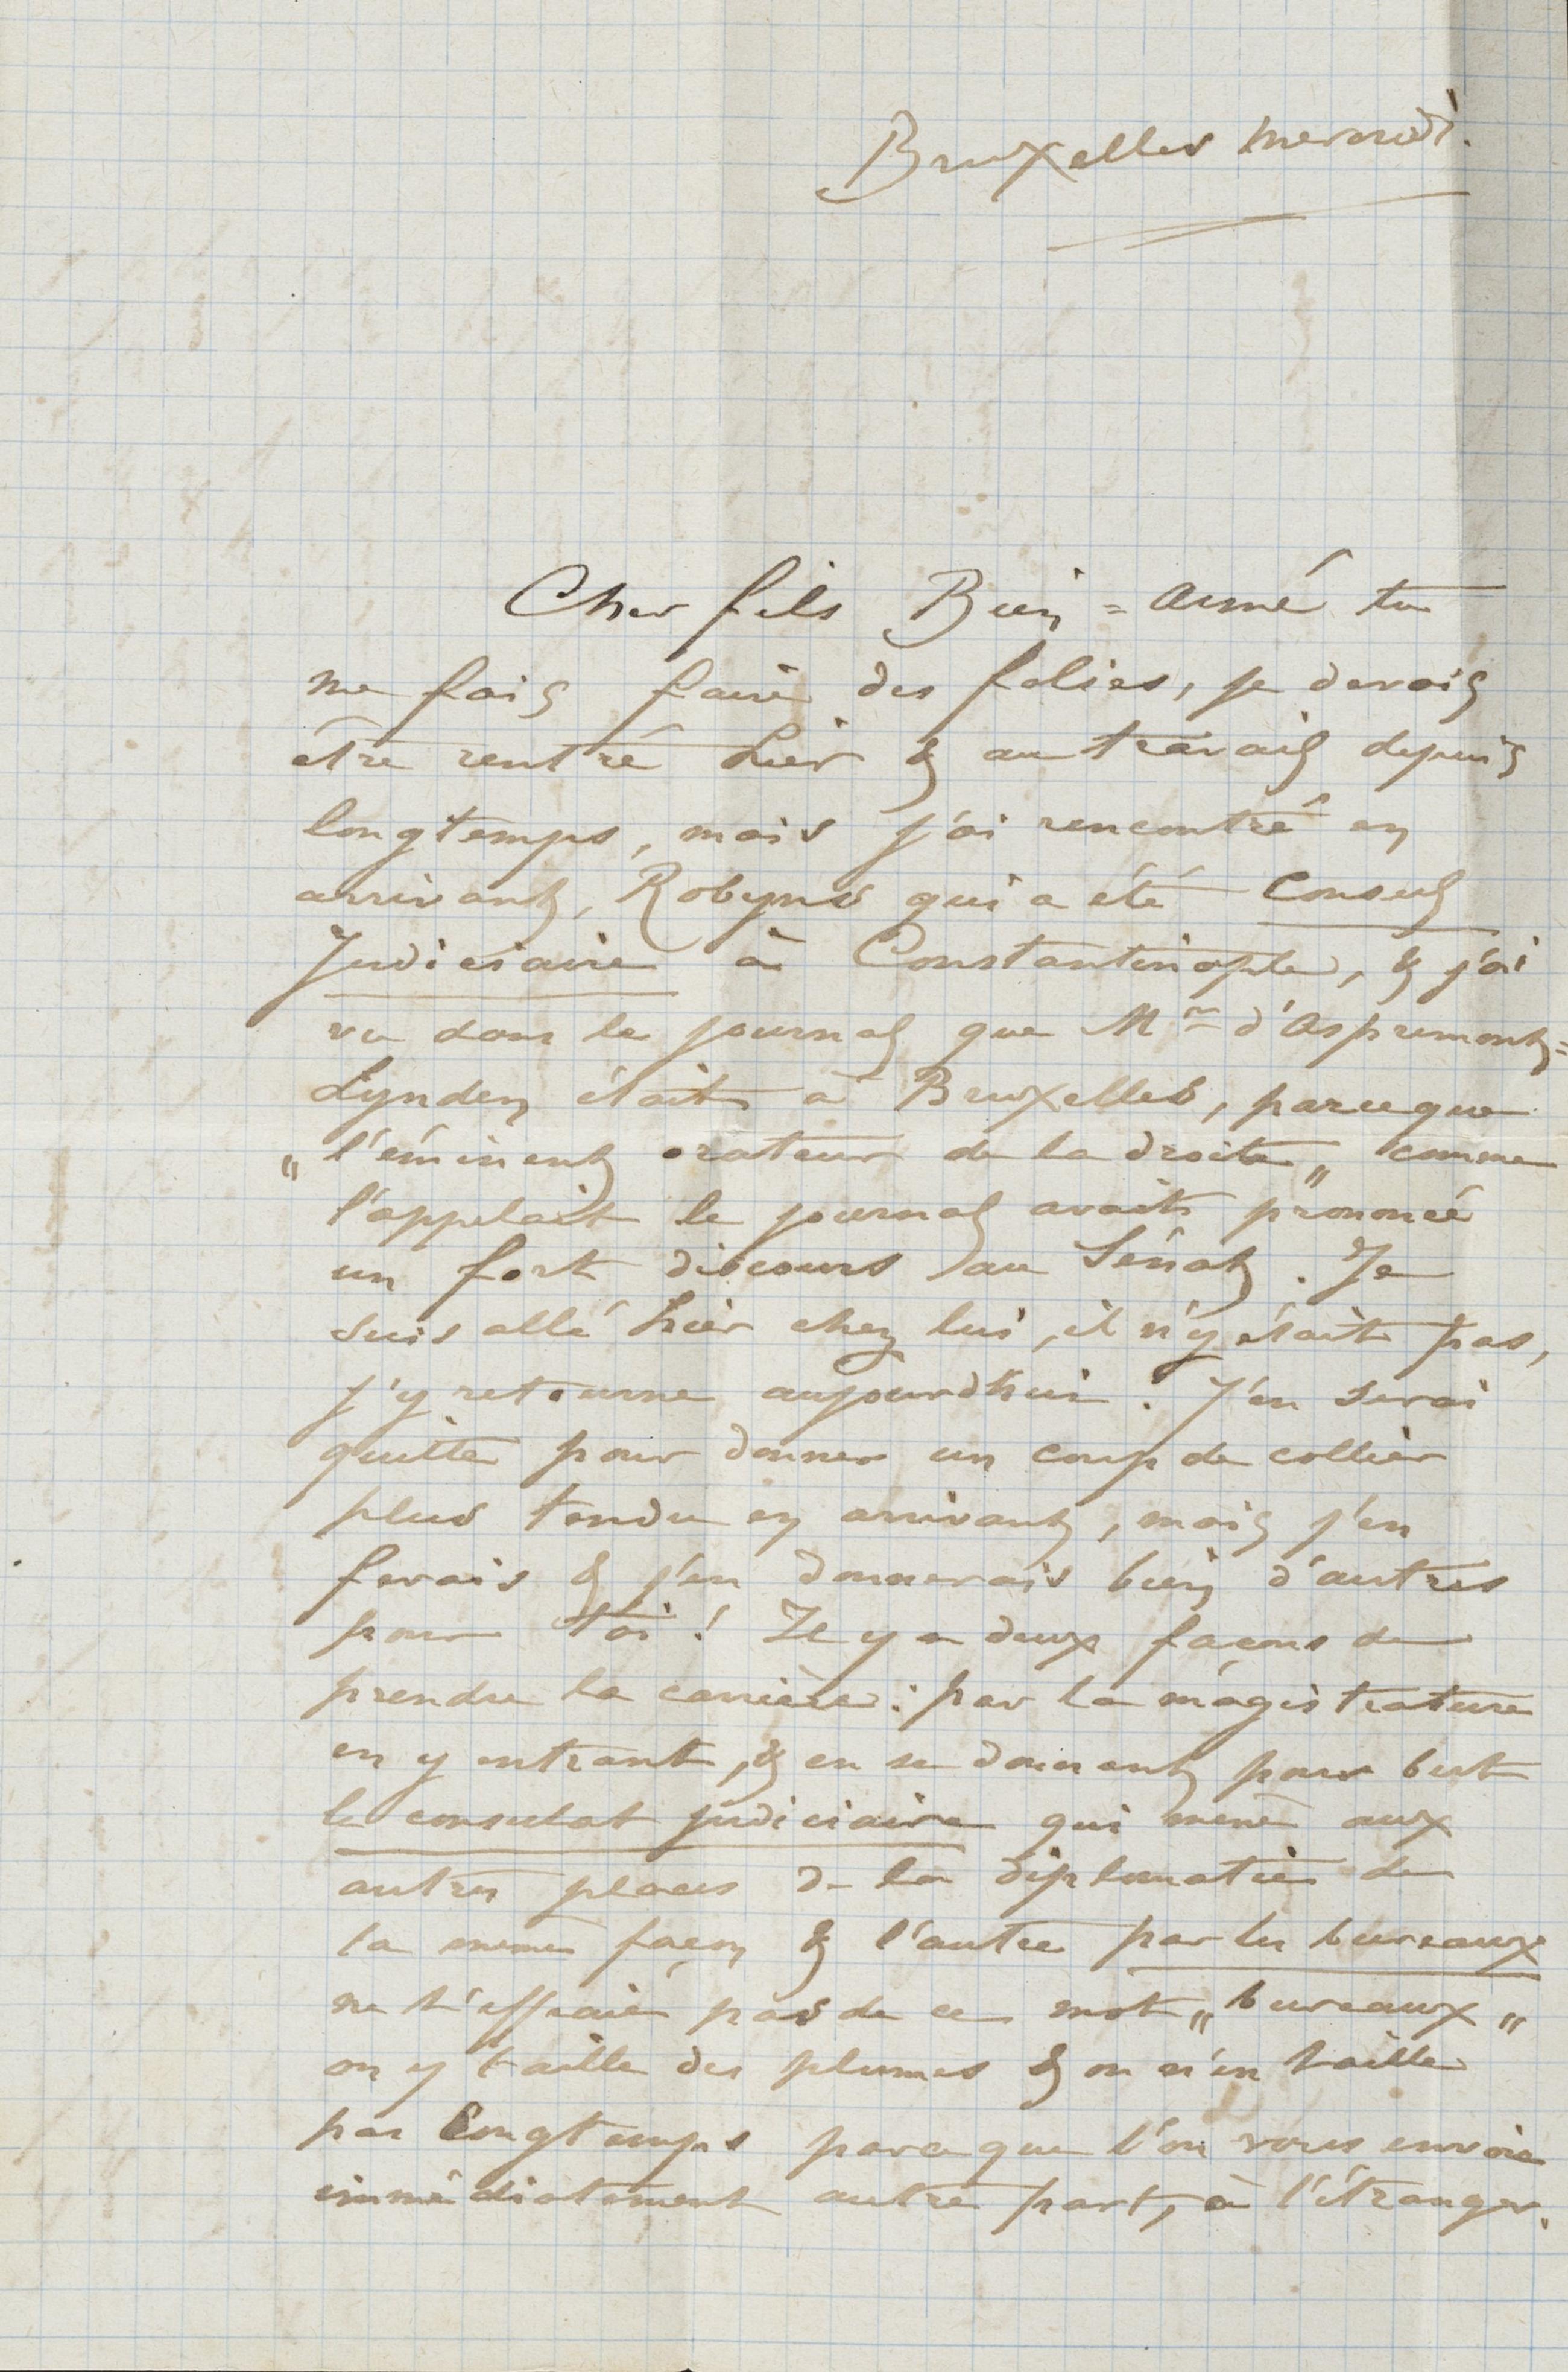 Bruxelles mercredi.
Cher fils Bien = Aimé tu
me fais faire des folies, je devais
être rentré hier & au travail depuis
longtemps, mais j'ai rencontré en
arrivant, Robyns qui a été Consul
Judiciaire à Constantinople, & j'ai
vu dans le journal que Mr d'Aspremont =
Lynden était à Bruxelles, parceque
„ l'éminent orateur de la droite „ comme
l'appelait le journal avait prononcé
un fort discours au Sénat. Je
suis allé hier chez lui, il n'y était pas,
j'y retourne aujourdhui. J'en serai
quitte pour donner un coup de collier
plus tendu en arrivant, mais j'en
ferais & j'en donnerais bien d'autres
pour toi ! Il y a deux façons de
prendre la carrière : par la magistrature
en y entrant, & en se donnant pour but
le consulat judiciaire qui mène aux
autres places de la diplomatie de
la même façon & l'autre par les bureaux
ne t'effraie pas de ce mot „ bureaux „
on y taille des plumes & on n'en taille
pas longtemps parceque l'on vous envoie
immédiatement autre part, à l'étranger.